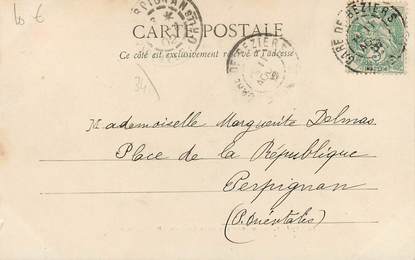 10 €
CARTE POSTALE
Ce côté est exclusivement réservé à l'adresse
GARE DE BÉZIERS
GARE DE BÉZIERS
34
Mademoiselle Marguerite Delmas
Place de la République
Perpignan
(P. Orientales)